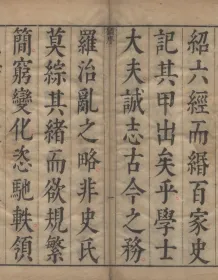 紹六經而緡百家史
記其甲出矣乎學士
大夫誠志古今之務
羅治亂之略非史氏
莫綜其緒而欲規繁
簡窮變化恣馳軼領